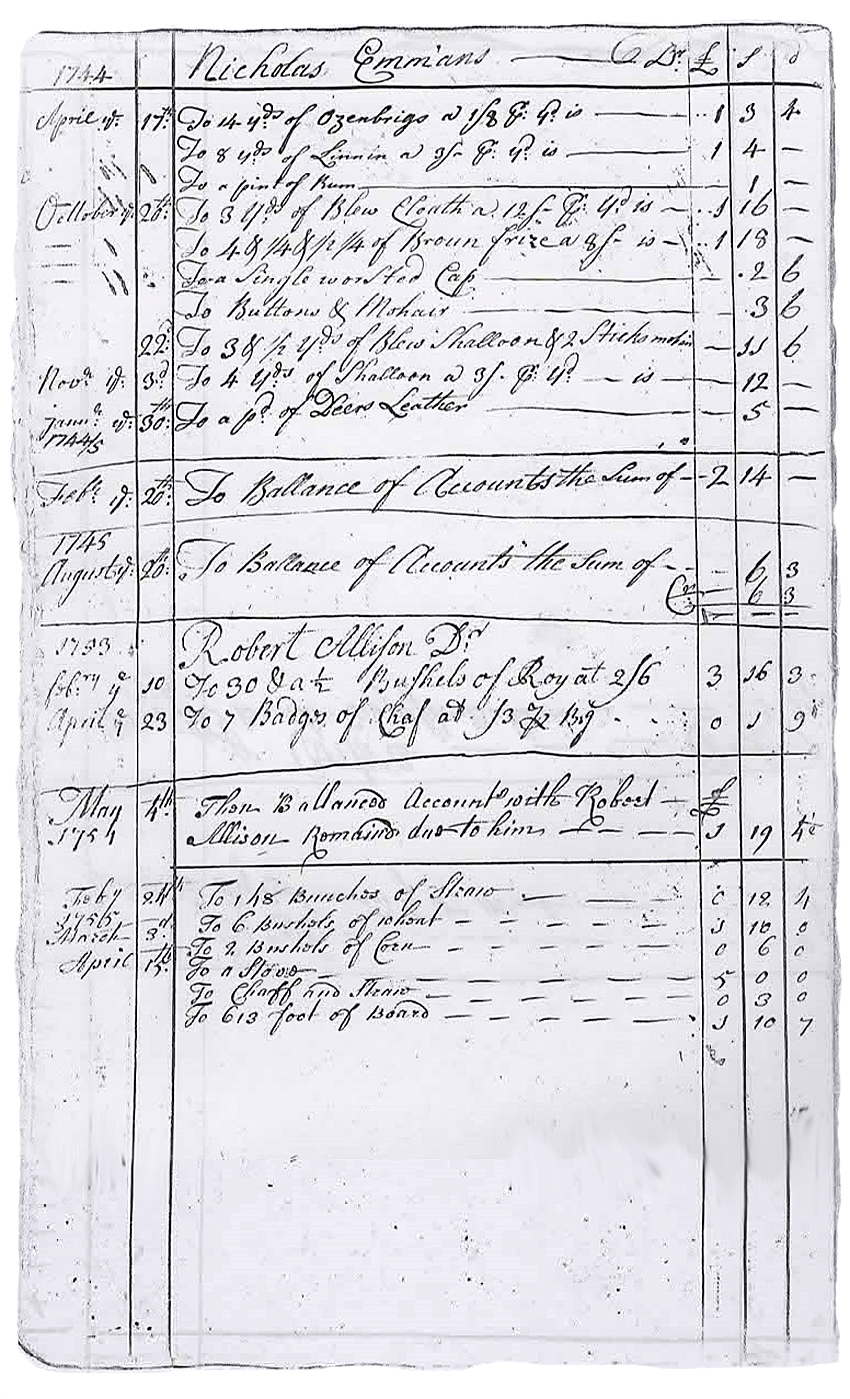 1744 Nicholas Emmans Dr £ s d
April ye 17th To 14 yds of Ozenbrigs a 1/8 P yd is 1 3 4
" " To 8 yds of Linnin a 3/- P yd is 1 4 -
" " To a pint of Rum 1 -
October ye 20th To 3 Yds of Blew Cloath a 12/- P Yd is 1 16 -
" To 4 & 1/4 & 1/2 1/4 of Broun frize a 8/- is 1 18 -
" To a Single worsted Cap 2 6
To Buttons & Mohair 3 6
22d To 3 & 1/2 Yds of Blew Shalloon & 2 Sticks mohair 11 6
Novr ye 3d To 4 Yds of Shalloon a 3/- P Yd is 12 -
Janr ye 30th To a pd of Deers Leather 5 -
1744/5
Febr ye 20th To Ballance of Accounts the Sum of 2 14 -
1745
August ye 20th To Ballance of Accounts the Sum of 6 3
Cr 6 3
1753 Robert Allison Dr
febry ye 10 To 30 & a 1/2 Bushels of Roy at 2/6 3 16 3
April ye 23 To 7 Badges of Chaf at /3 P Bg 0 1 9
May 4th Then Ballanced Accounts with Robert £
1754 Allison Remains due to him 1 19 4
Feby 24th To 148 Bunches of Straw 0 12 4
1756
March 3d To 6 Bushels of wheat 1 10 0
To 2 Bushels of Corn 0 6 0
April 15th To a Stove 5 0 0
To Chaff and Straw 0 3 0
To 613 foot of Board 1 10 7